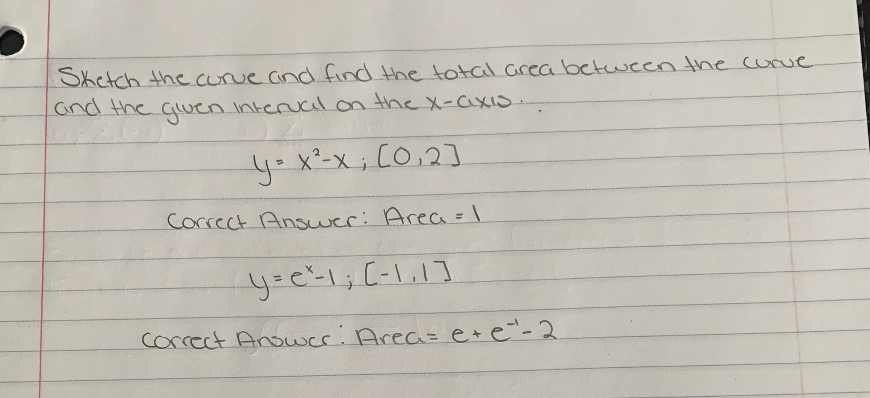 Sketch the curve and find the total area between the curve
and the given interval on the x-axis.
y = x²-x ; [0,2]
Correct Answer: Area = 1
y = eˣ-1 ; [-1,1]
Correct Answer: Area = e + e⁻¹ - 2